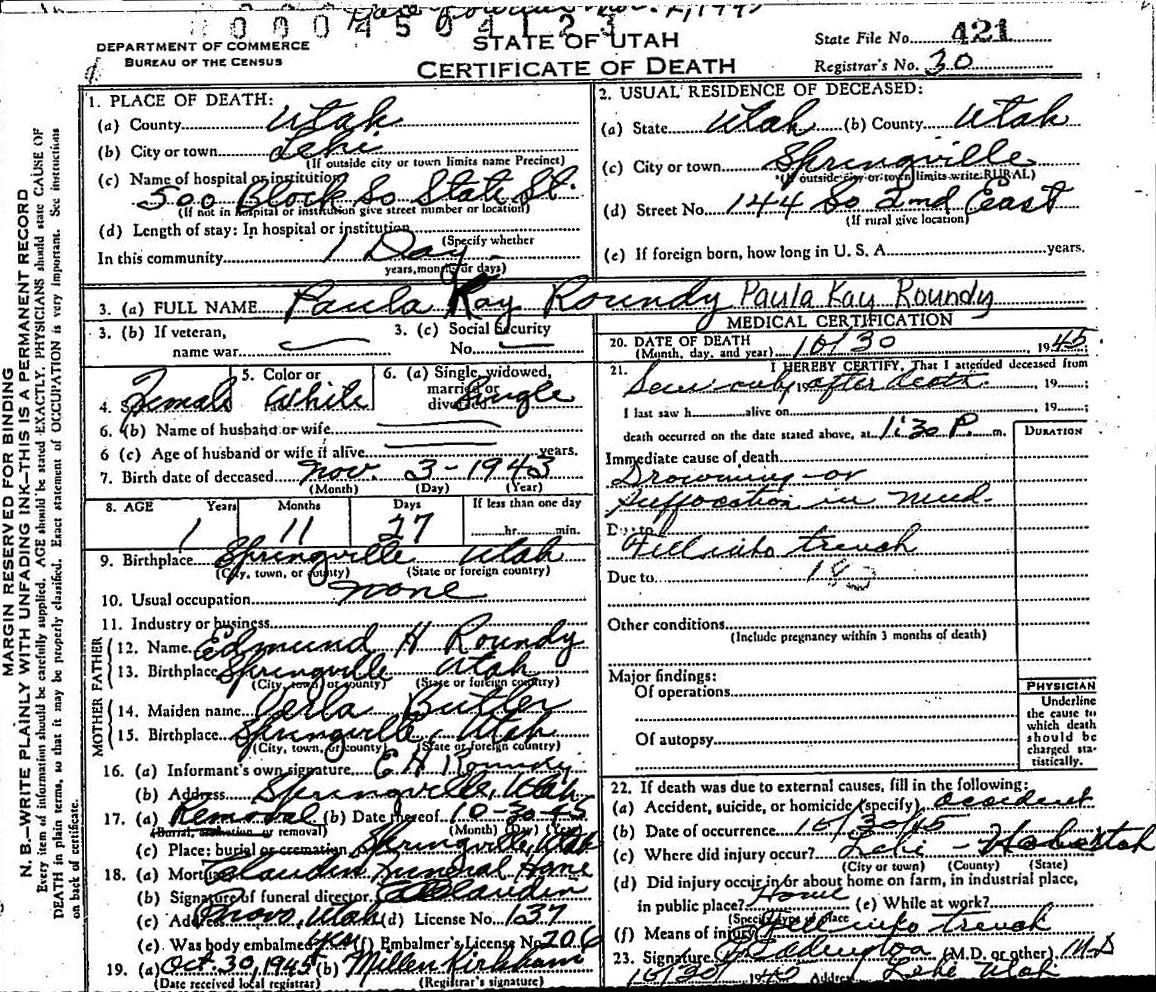 0 0 0 4 5 0 4 1 2 3
DEPARTMENT OF COMMERCE
BUREAU OF THE CENSUS
STATE OF UTAH
CERTIFICATE OF DEATH
State File No. 421
Registrar's No. 30
MARGIN RESERVED FOR BINDING
N. B.—WRITE PLAINLY WITH UNFADING INK—THIS IS A PERMANENT RECORD
Every item of information should be carefully supplied. AGE should be stated EXACTLY. PHYSICIANS should state CAUSE OF
DEATH in plain terms, so that it may be properly classified. Exact statement of OCCUPATION is very important. See instructions
on back of certificate.
1. PLACE OF DEATH:
(a) County Utah
(b) City or town Lehi
(If outside city or town limits name Precinct)
(c) Name of hospital or institution
500 Block So State St.
(If not in hospital or institution give street number or location)
(d) Length of stay: In hospital or institution
(Specify whether
In this community 1 Day
years, months or days)
2. USUAL RESIDENCE OF DECEASED:
(a) State Utah (b) County Utah
(c) City or town Springville
(If outside city or town limits write RURAL)
(d) Street No. 144 So 2nd East
(If rural give location)
(e) If foreign born, how long in U. S. A. years.
3. (a) FULL NAME Paula Kay Roundy Paula Kay Roundy
3. (b) If veteran,
name war
3. (c) Social Security
No.
4. Sex Female
5. Color or
race White
6. (a) Single, widowed,
married or
divorced Single
6. (b) Name of husband or wife
6 (c) Age of husband or wife if alive years.
7. Birth date of deceased Nov. 3 - 1943
(Month) (Day) (Year)
8. AGE Years Months Days If less than one day
1 11 27 hr. min.
9. Birthplace Springville Utah
(City, town, or county) (State or foreign country)
10. Usual occupation none
11. Industry or business
FATHER
12. Name Edmund H Roundy
13. Birthplace Springville Utah
(City, town or county) (State or foreign country)
MOTHER
14. Maiden name Verla Butler
15. Birthplace Springville Utah
(City, town, or county) (State or foreign country)
16. (a) Informant's own signature E H Roundy
(b) Address Springville, Utah
17. (a) Removal (b) Date thereof 10-30-45
(Burial, cremation or removal) (Month) (Day) (Year)
(c) Place: burial or cremation Springville, Utah
18. (a) Mortuary Claudin Funeral Home
(b) Signature of funeral director Claudin
(c) Address Provo, Utah (d) License No. 137
(e) Was body embalmed Yes (f) Embalmer's License No. 206
19. (a) Oct 30, 1945 (b) Millen Kirkham
(Date received local registrar) (Registrar's signature)
MEDICAL CERTIFICATION
20. DATE OF DEATH
(Month, day, and year) 10/30, 1945
21. I HEREBY CERTIFY, That I attended deceased from
Seen only after death. 19
I last saw h alive on , 19 ;
death occurred on the date stated above, at 1:30 P. m.
DURATION
Immediate cause of death
Drowning or
suffocation in mud.
Due to
Fell into trench
Due to
Other conditions
(Include pregnancy within 3 months of death)
Major findings:
Of operations
Of autopsy
PHYSICIAN
Underline
the cause to
which death
should be
charged sta-
tistically.
22. If death was due to external causes, fill in the following:
(a) Accident, suicide, or homicide (specify) accident
(b) Date of occurrence 10/30/45
(c) Where did injury occur? Lehi - Utah
(City or town) (County) (State)
(d) Did injury occur in or about home on farm, in industrial place,
in public place? Home (e) While at work?
(Specify type of place
(f) Means of injury Fell into trench
23. Signature (M.D. or other) MD
10/30 1945 Address Lehi Utah